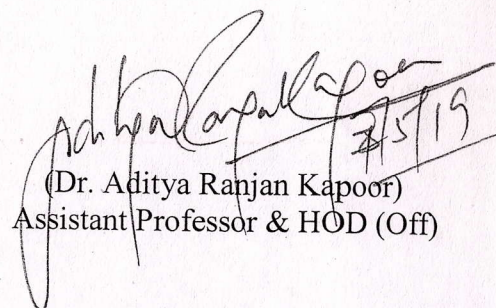 Aditya Ranjan Kapoor
/5/19
(Dr. Aditya Ranjan Kapoor)
Assistant Professor & HOD (Off)